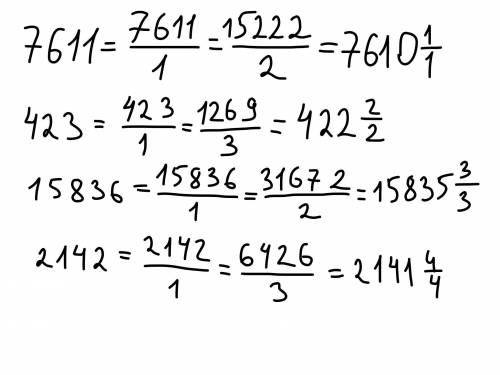 7611 = 7611/1 = 15222/2 = 7610 1/1
423 = 423/1 = 1269/3 = 422 2/2
15836 = 15836/1 = 31672/2 = 15835 3/3
2142 = 2142/1 = 6426/3 = 2141 4/4